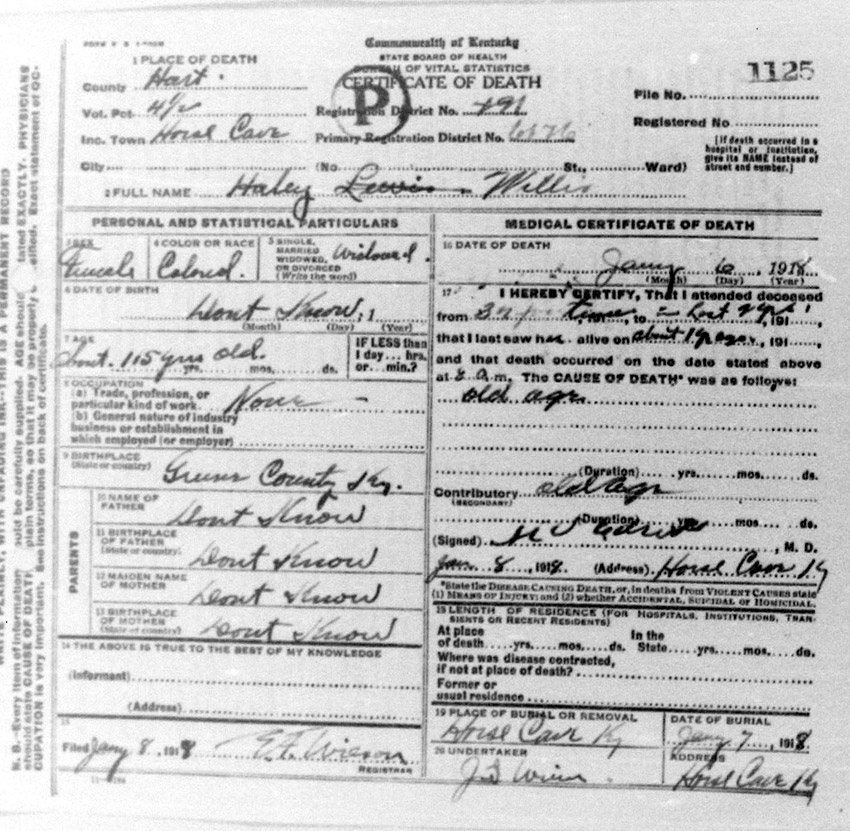 Commonwealth of Kentucky
STATE BOARD OF HEALTH
BUREAU OF VITAL STATISTICS
CERTIFICATE OF DEATH
P
1 PLACE OF DEATH
County Hart
Vot. Pct 4½
Inc. Town Horse Cave
City
Registration District No. 491
Primary Registration District No.
(No. St., Ward)
File No. 1125
Registered No
[If death occurred in a
hospital or institution,
give its NAME instead of
street and number.]
2 FULL NAME Haley Lewis - Willis
PERSONAL AND STATISTICAL PARTICULARS
3 SEX
Female
4 COLOR OR RACE
Colored.
5 SINGLE,
MARRIED
WIDOWED,
OR DIVORCED
(Write the word)
Widowed.
6 DATE OF BIRTH
Dont Know, 1
(Month) (Day) (Year)
7 AGE
About 115 yrs old.
yrs. mos. ds.
IF LESS than
1 day... hrs.
or... min.?
8 OCCUPATION
(a) Trade, profession, or
particular kind of work. None -
(b) General nature of industry
business or establishment in
which employed (or employer)
9 BIRTHPLACE
(State or country)
Green County Ky.
PARENTS
10 NAME OF
FATHER
Dont Know
11 BIRTHPLACE
OF FATHER
(State or country)
Dont Know
12 MAIDEN NAME
OF MOTHER
Dont Know
13 BIRTHPLACE
OF MOTHER
(State or country)
Dont Know
14 THE ABOVE IS TRUE TO THE BEST OF MY KNOWLEDGE
(Informant)
(Address)
15
Filed Jany 8, 1918 E.F. Wilson
REGISTRAR
MEDICAL CERTIFICATE OF DEATH
16 DATE OF DEATH
Jany 6, 1918
(Month) (Day) (Year)
17 I HEREBY CERTIFY, That I attended deceased
from times, to last, 191
that I last saw her alive on about, 191
and that death occurred on the date stated above
at 8 a.m. The CAUSE OF DEATH* was as follows:
old age
(Duration) yrs. mos. ds.
Contributory old age
(SECONDARY)
(Duration) yrs. mos. ds.
(Signed), M. D.
Jan. 8, 1918. (Address) Horse Cave Ky
*State the DISEASE CAUSING DEATH, or, in deaths from VIOLENT CAUSES state
(1) MEANS OF INJURY; and (2) whether ACCIDENTAL, SUICIDAL or HOMICIDAL.
18 LENGTH OF RESIDENCE (FOR HOSPITALS, INSTITUTIONS, TRAN-
SIENTS OR RECENT RESIDENTS)
At place In the
of death yrs. mos. ds. State yrs. mos. ds.
Where was disease contracted,
if not at place of death?
Former or
usual residence
19 PLACE OF BURIAL OR REMOVAL
Horse Cave Ky
DATE OF BURIAL
Jany 7, 1918
20 UNDERTAKER
ADDRESS
Horse Cave Ky